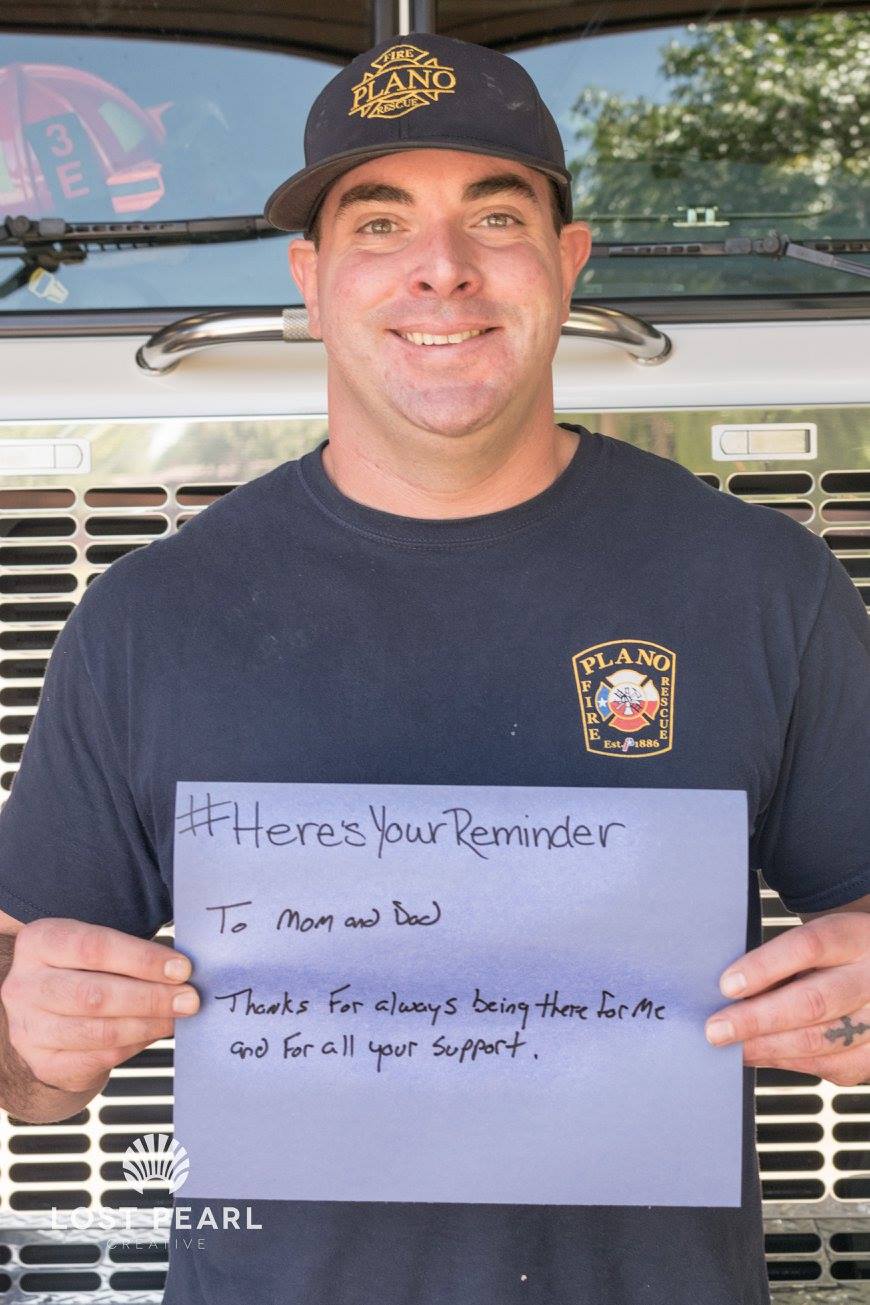 FIRE
PLANO
RESCUE
3
E
PLANO
FIRE
RESCUE
Est. 1886
#Here'sYourReminder
To Mom and Dad
Thanks For always being there for Me
and For all your support.
LOST PEARL
CREATIVE